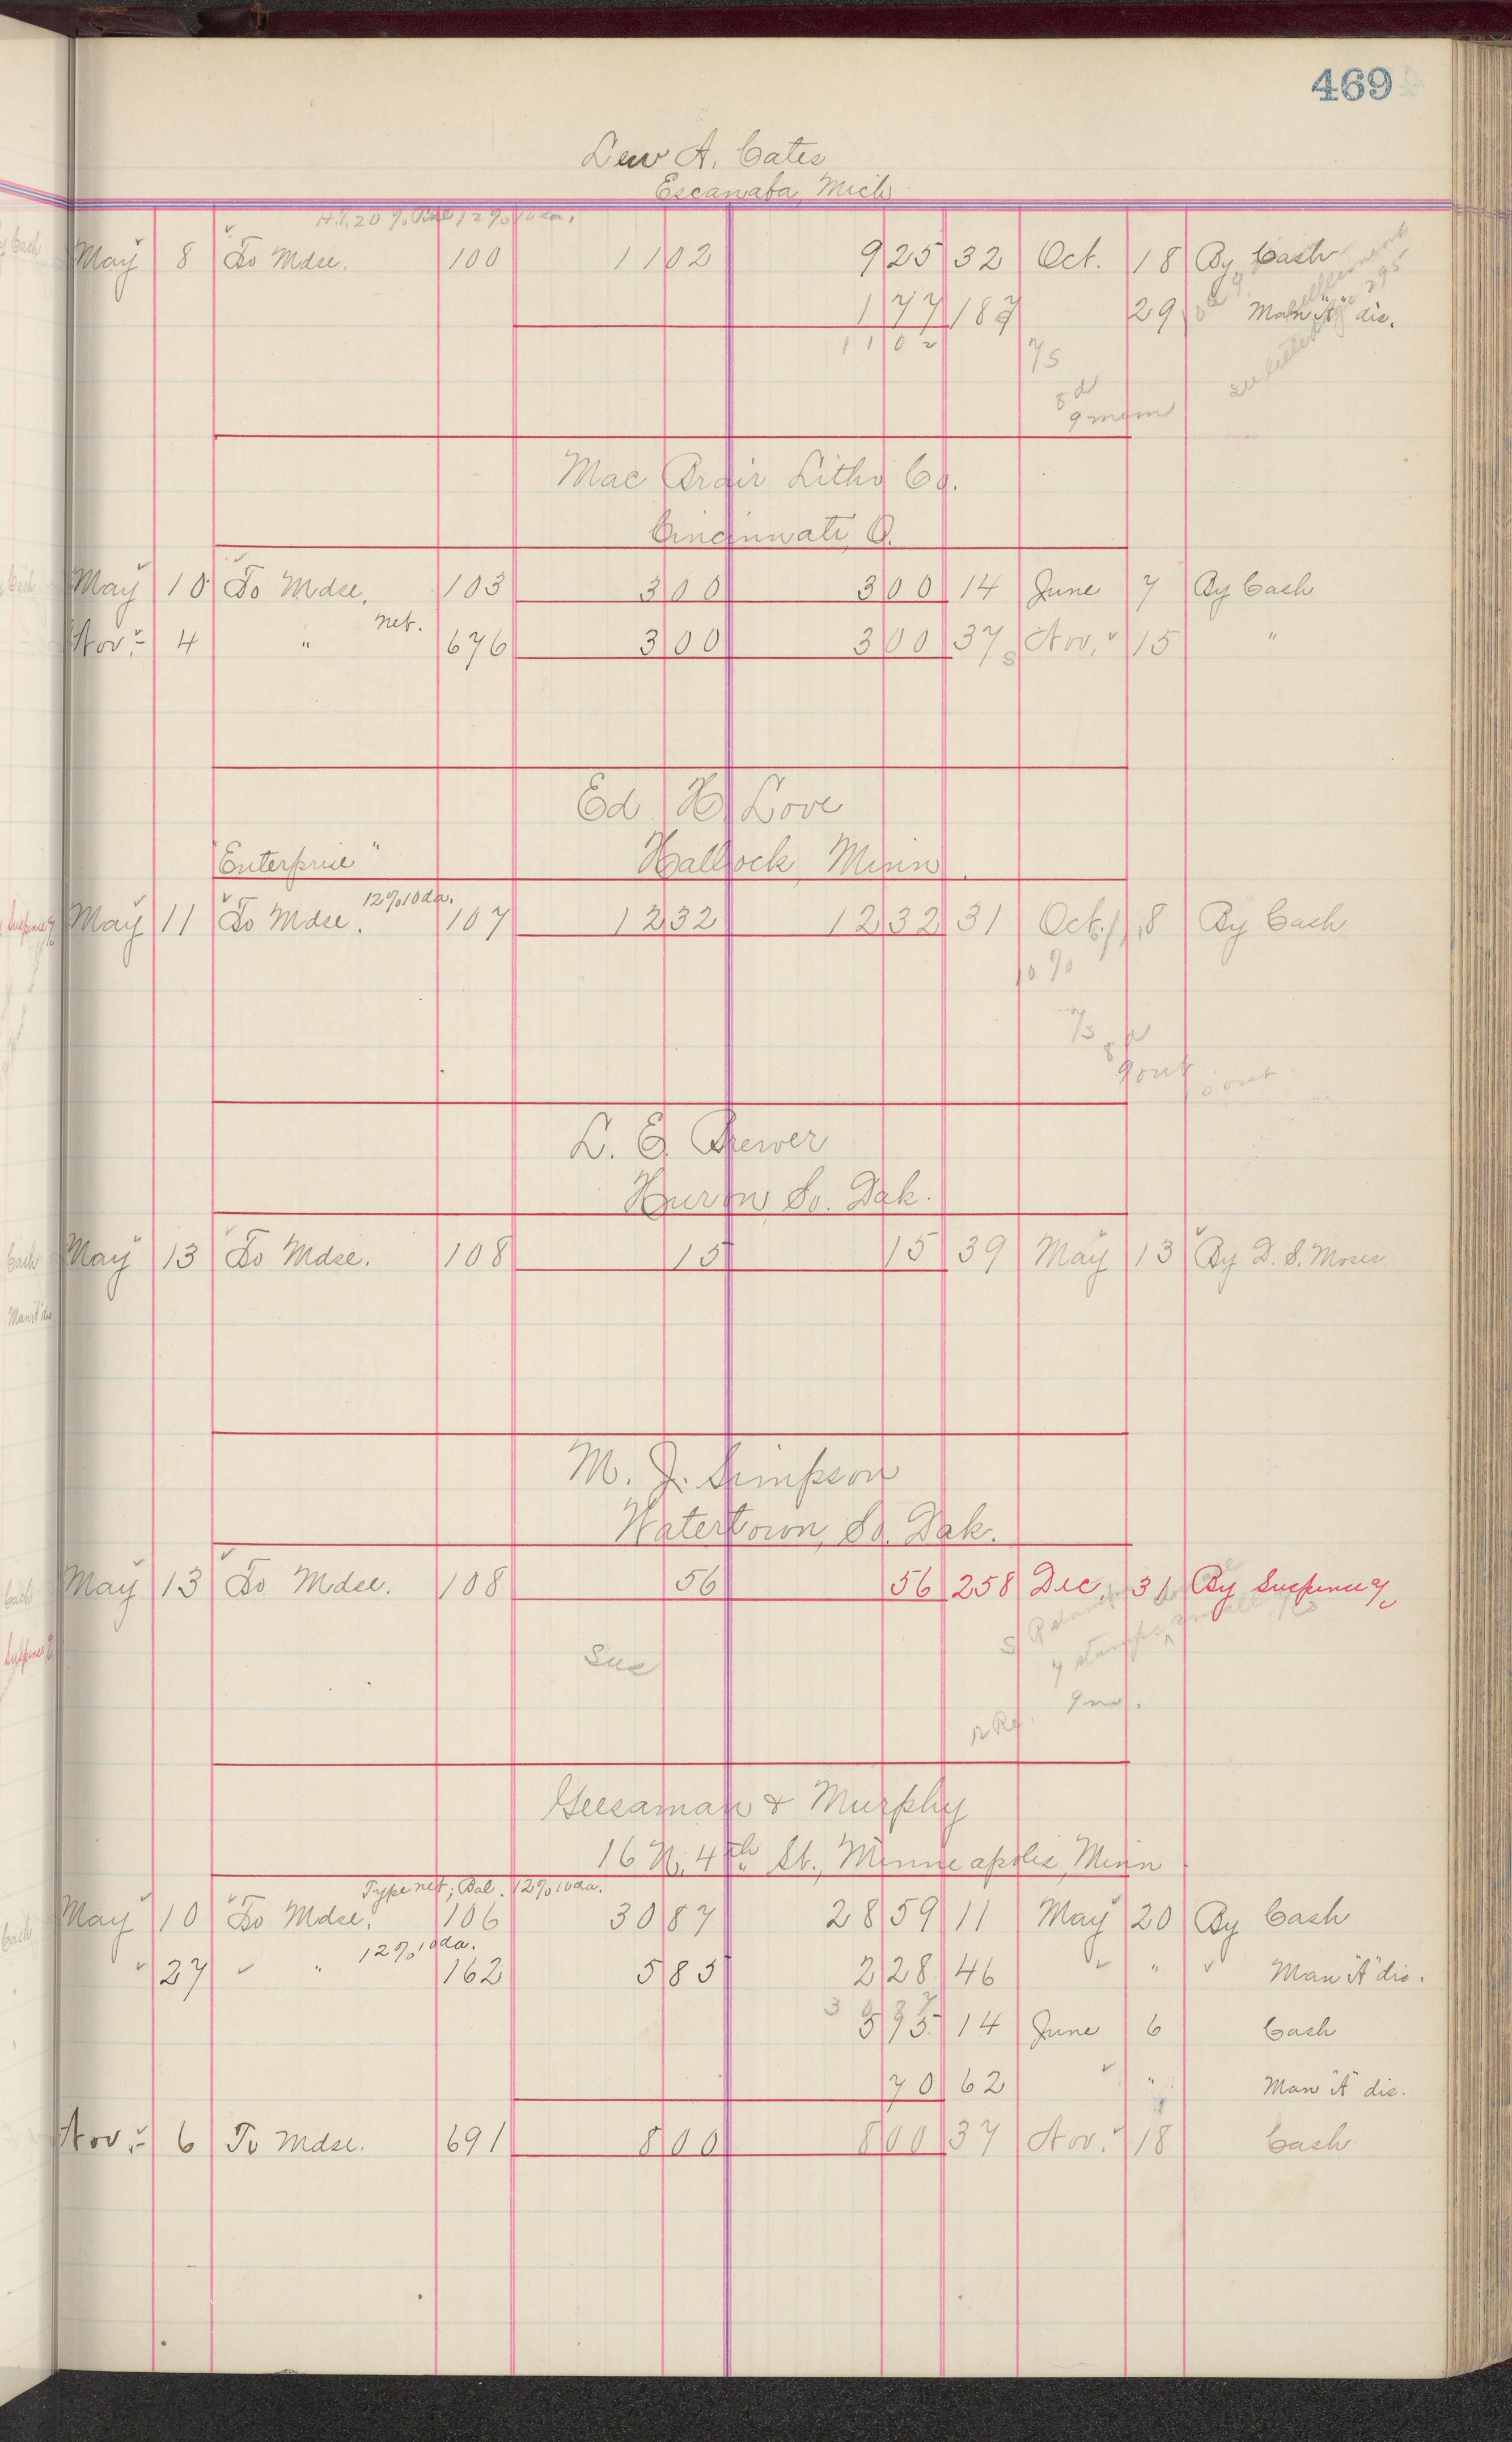 469
Lew A. Cates
Escanaba, Mich
H.T. 20% Bal 12% 10 da.
May 8 To Mdse. 100 11 02 9 25 32 Oct. 18 By Cash
1 77 187 29 Man "A" dis.
11 02
7/5
8 d
9 mem
Mac Brair Litho Co.
Cincinnati, O.
May 10 To Mdse. 103 3 00 3 00 14 June 7 By Cash
net.
Nov. 4 " 676 3 00 3 00 37 Nov. 15 "
Ed. H. Love
"Enterprise" Hallock, Minn.
12% 10 da.
May 11 To Mdse. 107 12 32 12 32 31 Oct. 8 By Cash
10%
7/5
9 out
L. E. Brewer
Huron So. Dak.
May 13 To Mdse. 108 15 15 39 May 13 By D. S. Moses
M. J. Simpson
Watertown, So. Dak.
May 13 To Mdse. 108 56 56 258 Dec. 31 By Suspense a/c
Sus
9 no.
Geesaman & Murphy
16 N. 4th St., Minneapolis, Minn
Type net; Bal. 12% 10 da.
May 10 To Mdse. 106 30 87 28 59 11 May 20 By Cash
12% 10 da.
" 27 " " 162 5 83 2 28 46 " " " Man "A" dis.
5 13 14 June 6 Cash
70 62 " " Man "A" dis.
Nov. 6 To Mdse. 691 8 00 8 00 37 Nov. 18 Cash